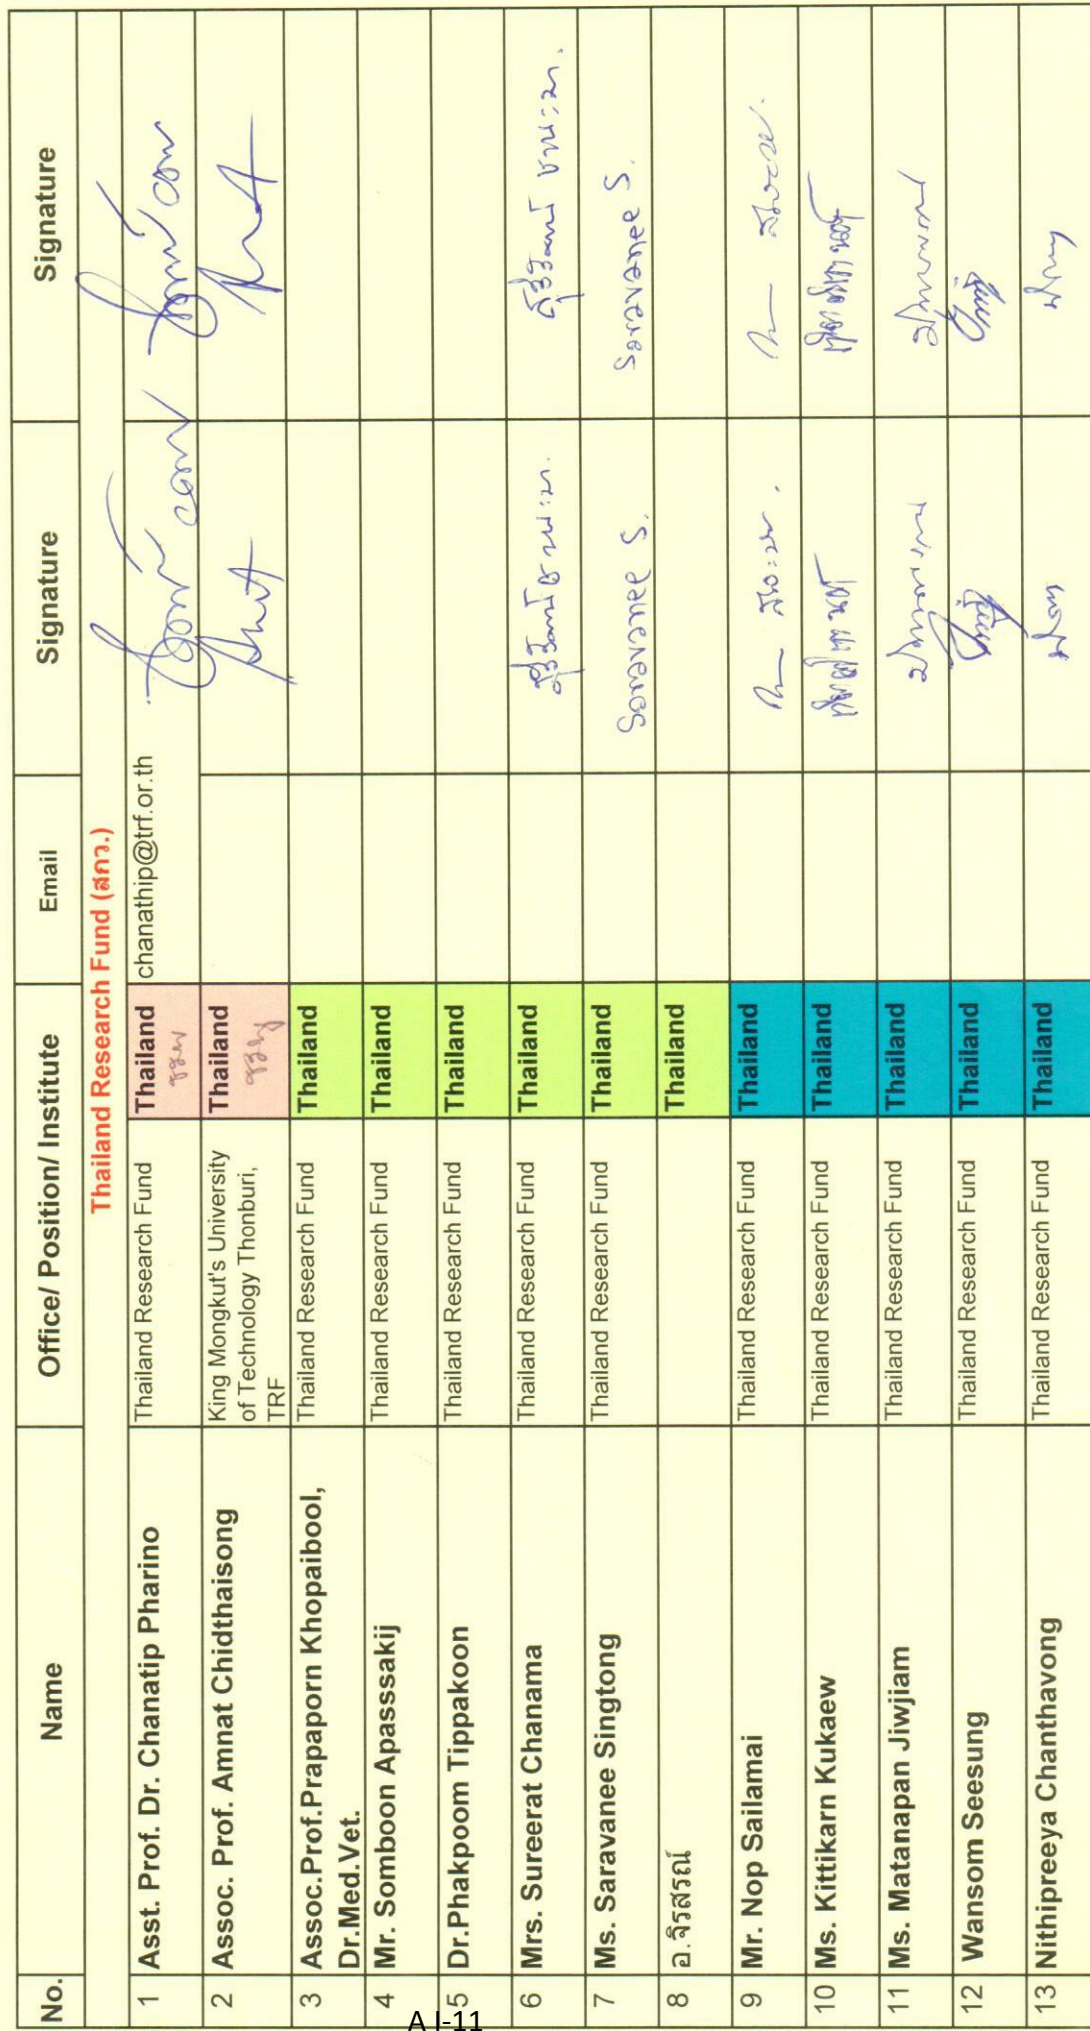 No. Name Office/ Position/ Institute Email Signature Signature
Thailand Research Fund (สกว.)
1 Asst. Prof. Dr. Chanatip Pharino Thailand Research Fund Thailand chanathip@trf.or.th
2 Assoc. Prof. Amnat Chidthaisong King Mongkut's University of Technology Thonburi, TRF Thailand
3 Assoc.Prof.Prapaporn Khopaibool, Dr.Med.Vet. Thailand Research Fund Thailand
4 Mr. Somboon Apasssakij Thailand Research Fund Thailand
5 Dr.Phakpoom Tippakoon Thailand Research Fund Thailand
6 Mrs. Sureerat Chanama Thailand Research Fund Thailand
7 Ms. Saravanee Singtong Thailand Research Fund Thailand Saravanee S. Saravanee S.
8 อ.จิรสรณ์ Thailand
9 Mr. Nop Sailamai Thailand Research Fund Thailand
10 Ms. Kittikarn Kukaew Thailand Research Fund Thailand
11 Ms. Matanapan Jiwjiam Thailand Research Fund Thailand
12 Wansom Seesung Thailand Research Fund Thailand
13 Nithipreeya Chanthavong Thailand Research Fund Thailand
A I-11